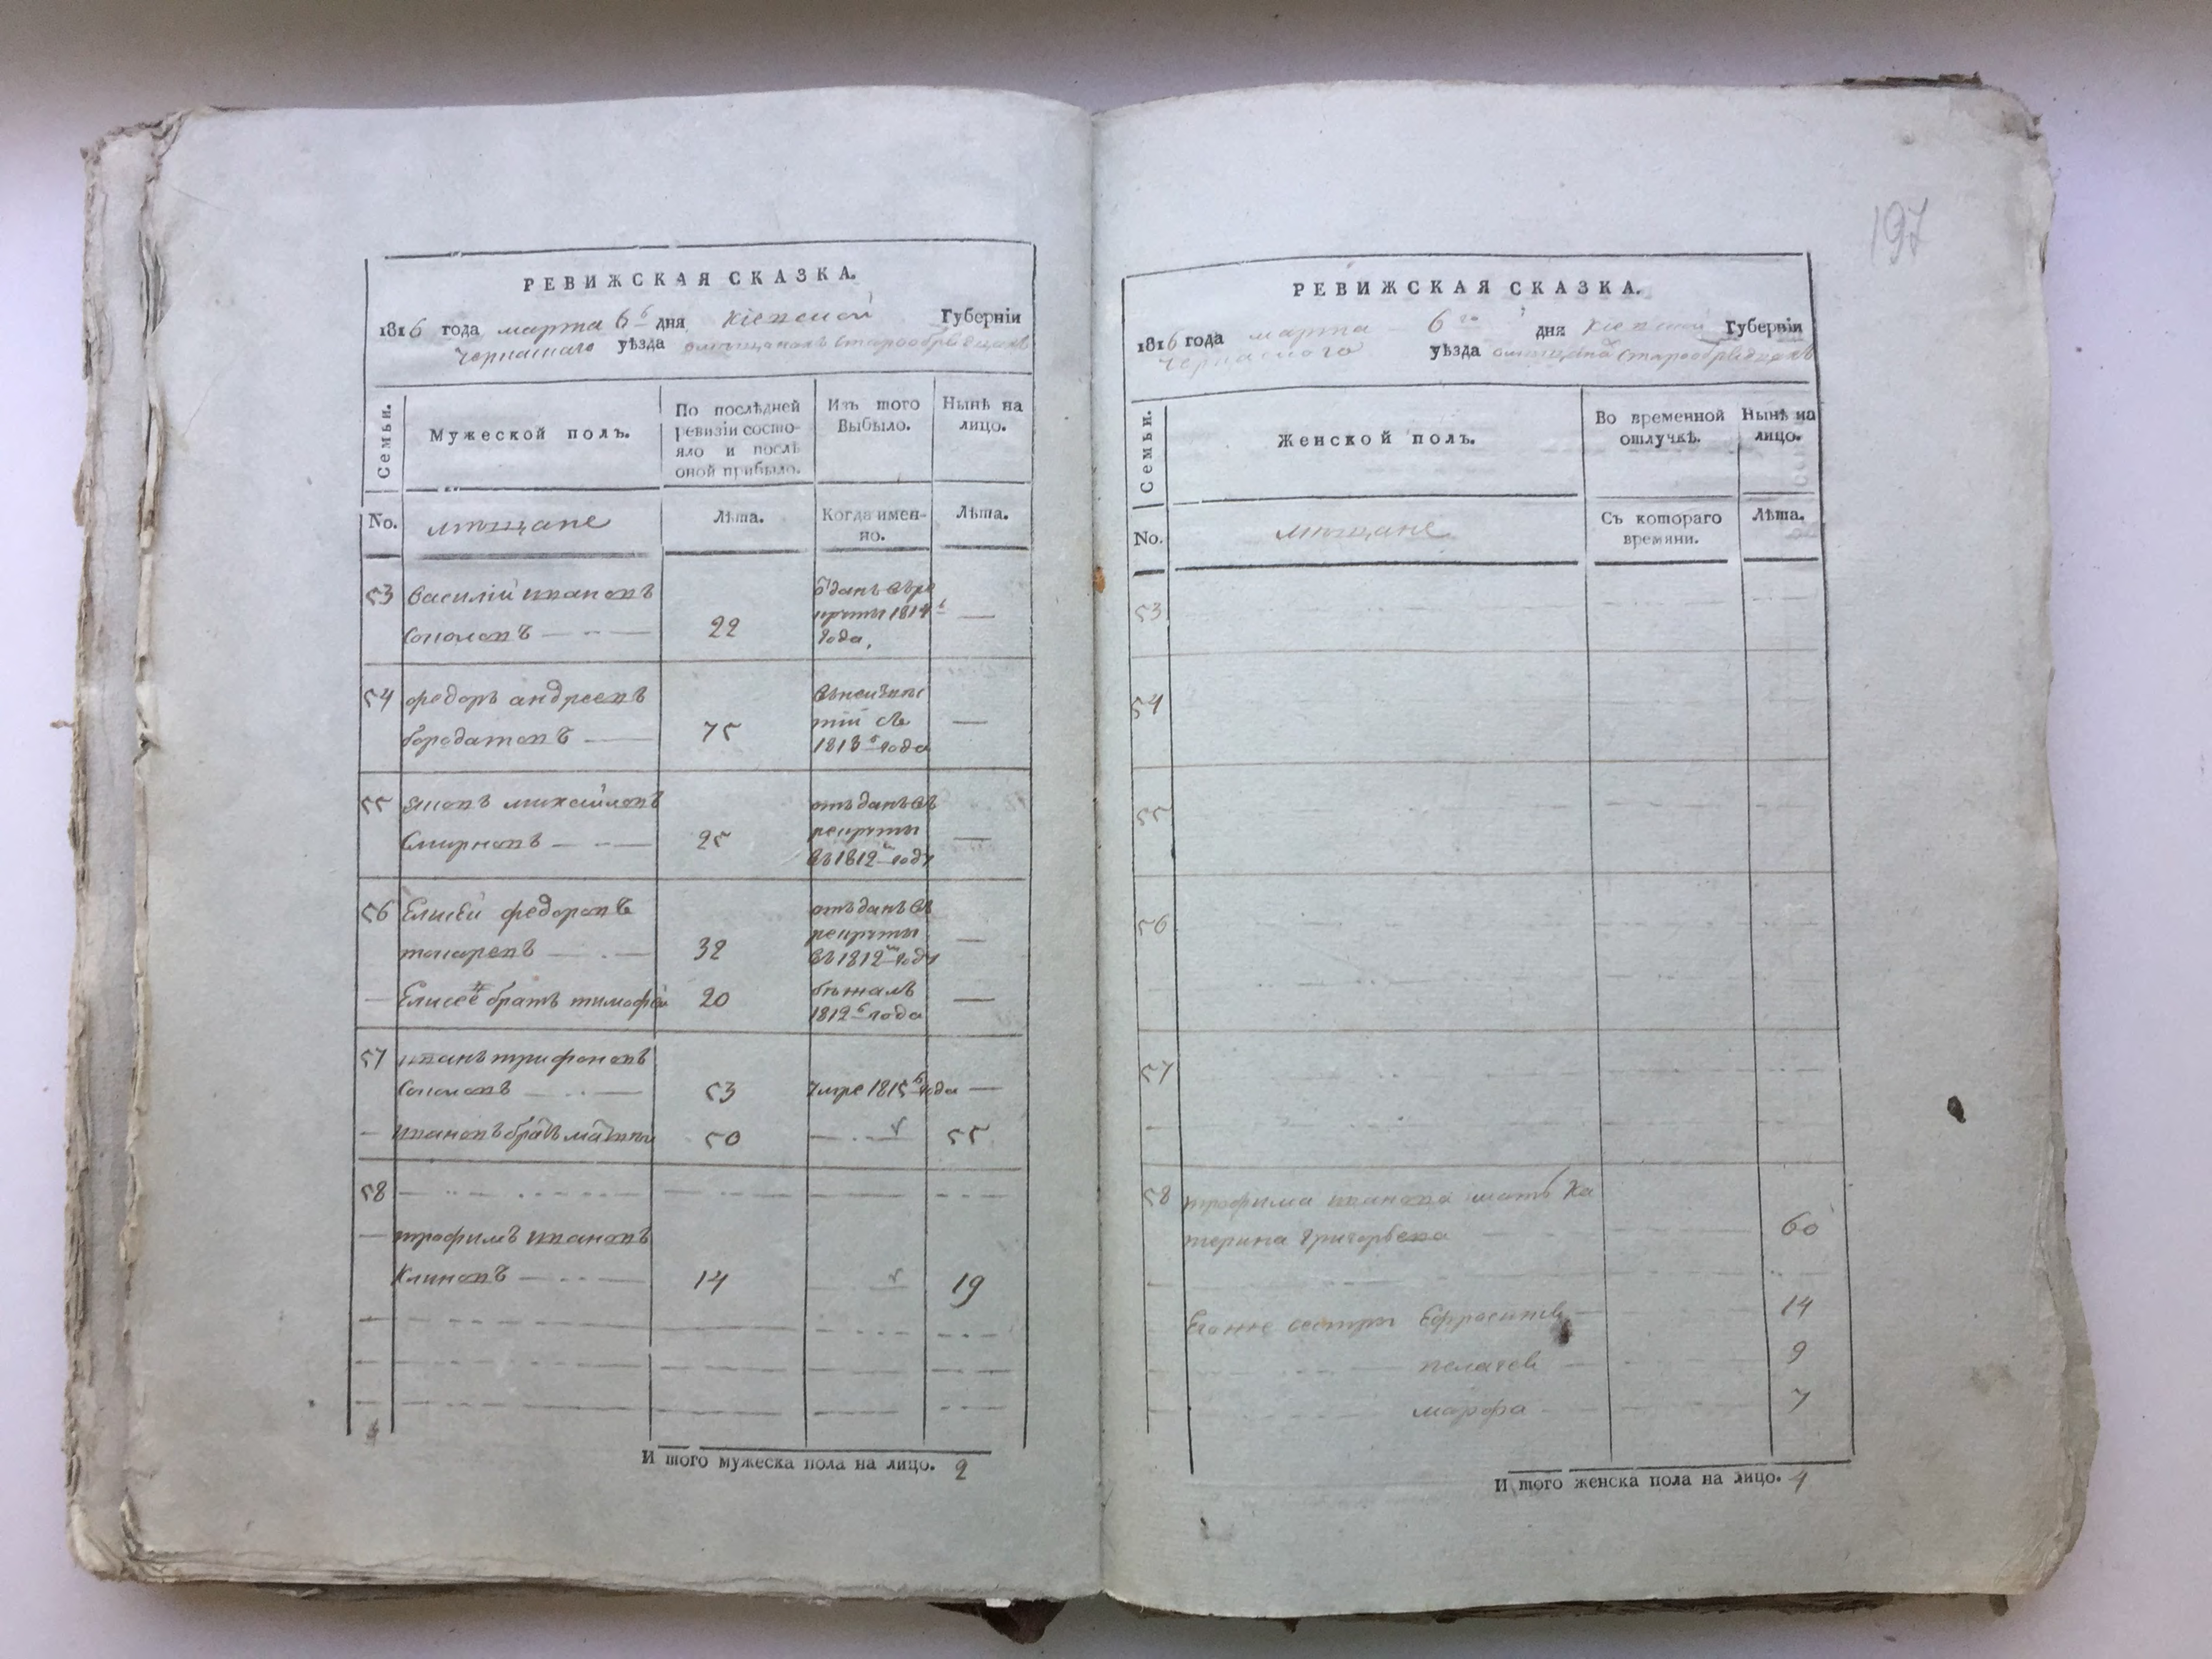 РЕВИЖСКАЯ СКАЗКА.
1816 года марта 6 дня Кіевской Губерніи
Черкаского уѣзда омѣщанахъ Старообрядцахъ
Семьи.
Мужеской полъ.
По послѣдней
ревизіи состо-
яло и послѣ
оной прибыло.
Изъ того
Выбыло.
Нынѣ на
лицо.
No.
мѣщане
Лѣта.
Когда имен-
но.
Лѣта.
53 Василій Ивановъ
Соколовъ 22
1814
года,
54 Федоръ андреевъ
бородатовъ 75
1813 года
55 Яковъ михайловъ отъданъ въ
Смирновъ 25 рекруты
въ 1812 годѣ
56 Елисей Федоровъ отъданъ въ
токаревъ 32 рекруты
въ 1812 годѣ
Елисея братъ тимофей 20 бѣжалъ
1812 года
57 иванъ трифоновъ
Соколовъ 53 умре 1815 года
ивановъ братъ матвей 50 55
58
трофимъ ивановъ
Климовъ 14 19
И того мужеска пола на лицо. 2
197
РЕВИЖСКАЯ СКАЗКА.
1816 года марта 6 го дня Кіевской Губерніи
Черкаского уѣзда омѣщанахъ Старообрядцахъ
Семьи.
Женской полъ.
Во временной
отлучкѣ.
Нынѣ на
лицо.
No.
мѣщане
Съ котораго
времяни.
Лѣта.
53
54
55
56
57
58 трофима иванова мать Ка
терина Григорьева 60
Егоже сестры Ефросинья 14
пелагея 9
марфа 7
И того женска пола на лицо. 4